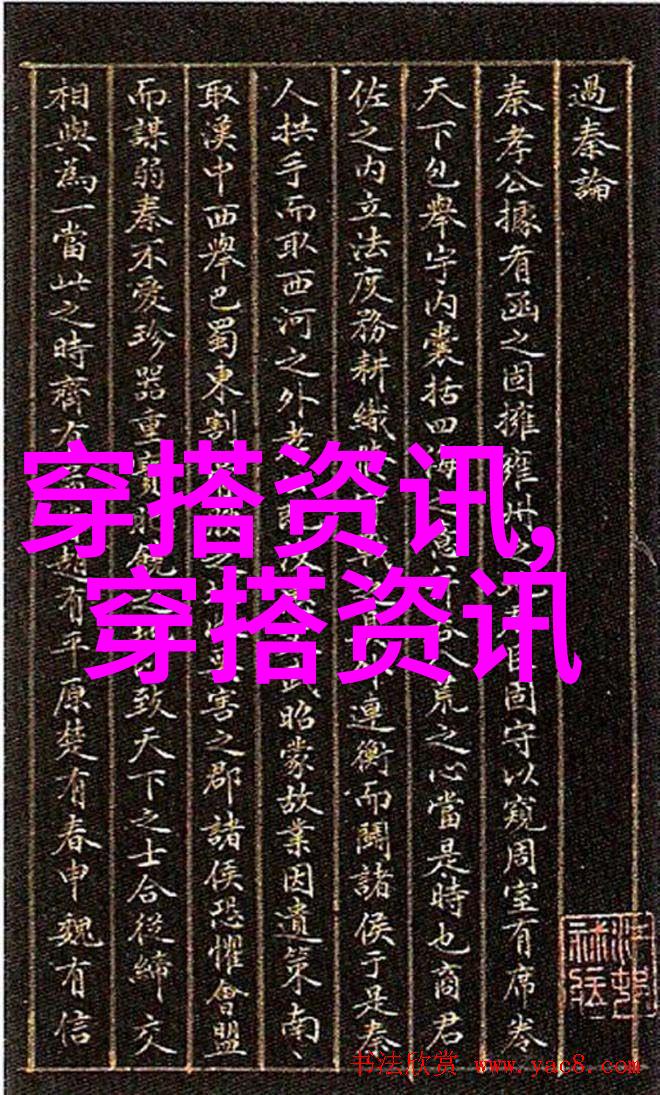 過秦論
秦孝公據肴函之固擁雍州之固守以窺周室有席卷
天下包舉宇内囊括四海荒之心當是時也商君
佐之内立法度務耕織戰之具外連衡而鬭諸侯于是秦
人拱手而取西河之外孝武昭蒙故業因遺策南、
取漢中西舉巴蜀東割之害之郡諸侯恐懼會盟
而謀弱秦不愛珍器重致天下之士合從締交
相與為一當此之時齊有趙有平原楚有春申魏有信
穿搭资讯,
穿搭资讯
书法欣赏 www.yac8.com